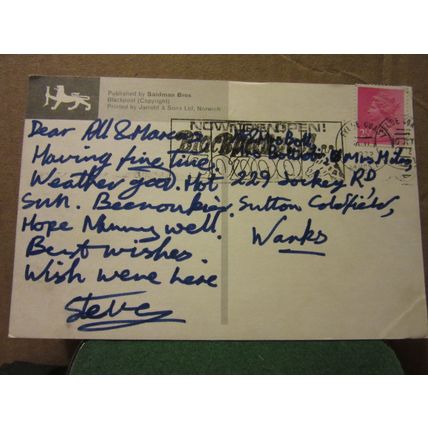 Published by Saidman Bros
Blackpool (Copyright)
Printed by Jarrold & Sons Ltd, Norwich
NOW OPEN!
Dear All &
Having fine time
Weather good. Hot
Sun.
Hope Mummy well.
Best wishes.
Wish were here
Steve
Mrs
229 Jockey RD,
Sutton Coldfield,
Warks